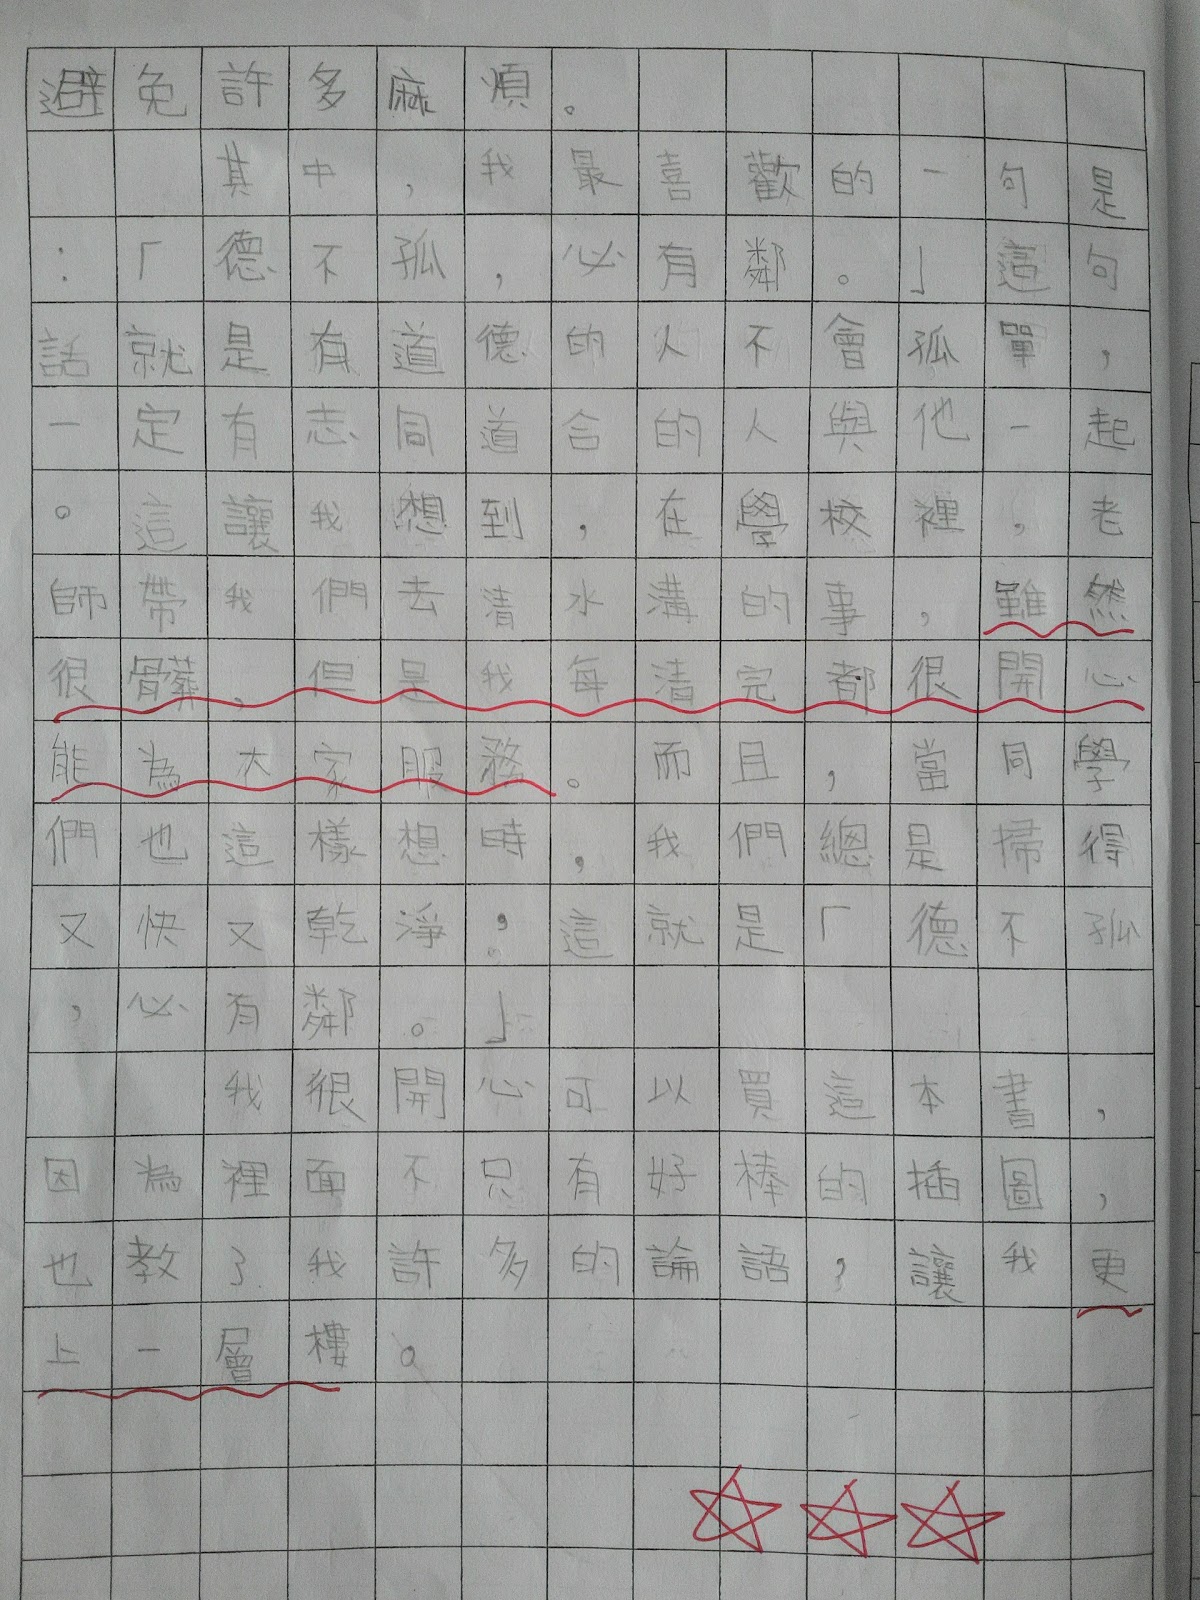 避免許多麻煩。
其中，我最喜歡的一句是
：「德不孤，必有鄰。」這句
話就是有道德的人不會孤單，
一定有志同道合的人與他一起
。這讓我想到，在學校裡，老
師帶我們去清水溝的事，雖然
很髒，但是我每清完都很開心
能為大家服務。而且，當同學
們也這樣想時，我們總是掃得
又快又乾淨；這就是「德不孤
，必有鄰。」
我很開心可以買這本書，
因為裡面不只有好棒的插圖，
也教了我許多的論語，讓我更
上一層樓。